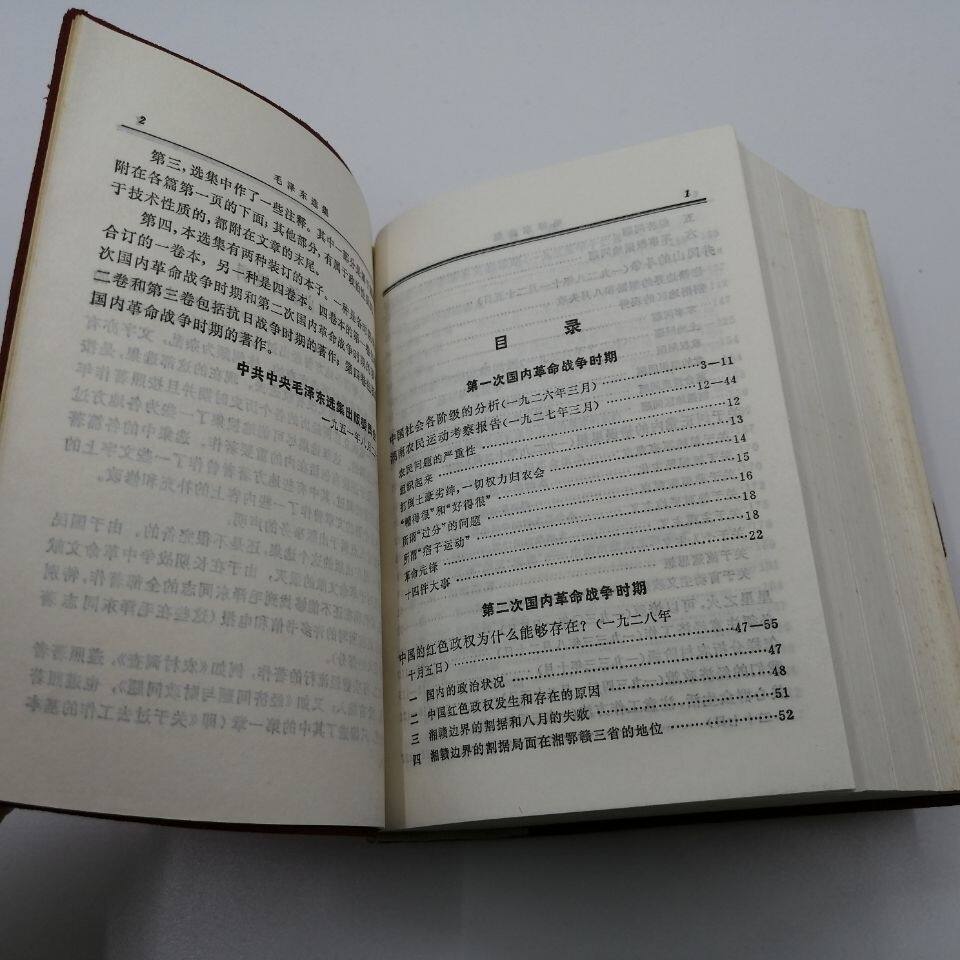 2
毛泽东选集
第三，选集中作了一些注释。其中一部分是属于
附在各篇第一页的下面；其他部分，有属于
于技术性质的，都附在文章的末尾。
第四，本选集有两种装订的本子。一种是各
合订的一卷本，另一种是四卷本。四卷本的第一卷
次国内革命战争时期和第二次国内革命战争时期
二卷和第三卷包括抗日战争时期的著作；第四卷
国内革命战争时期的著作。
中共中央毛泽东选集出版委员会
一九五一年八月二
1
目 录
第一次国内革命战争时期
中国社会各阶级的分析（一九二六年三月）……3—11
湖南农民运动考察报告（一九二七年三月）……12—44
农民问题的严重性……12
组织起来……13
打倒土豪劣绅，一切权力归农会……14
“糟得很”和“好得很”……15
所谓“过分”的问题……16
所谓“痞子运动”……18
革命先锋……18
十四件大事……22
第二次国内革命战争时期
中国的红色政权为什么能够存在？（一九二八年
十月五日）……47—55
一 国内的政治状况……47
二 中国红色政权发生和存在的原因……48
三 湘赣边界的割据和八月的失败……51
四 湘赣边界的割据局面在湘鄂赣三省的地位……52